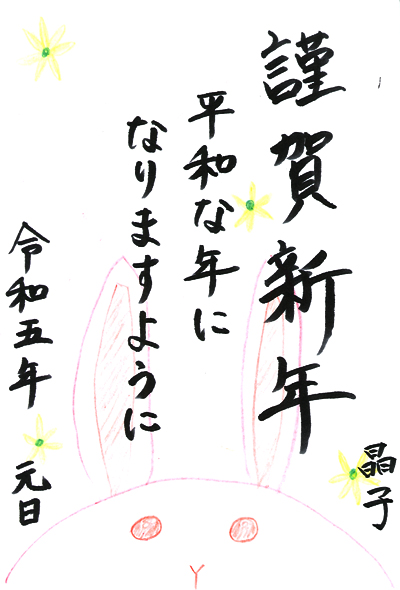 謹賀新年
平和な年に
なりますように
令和五年 元日
晶子